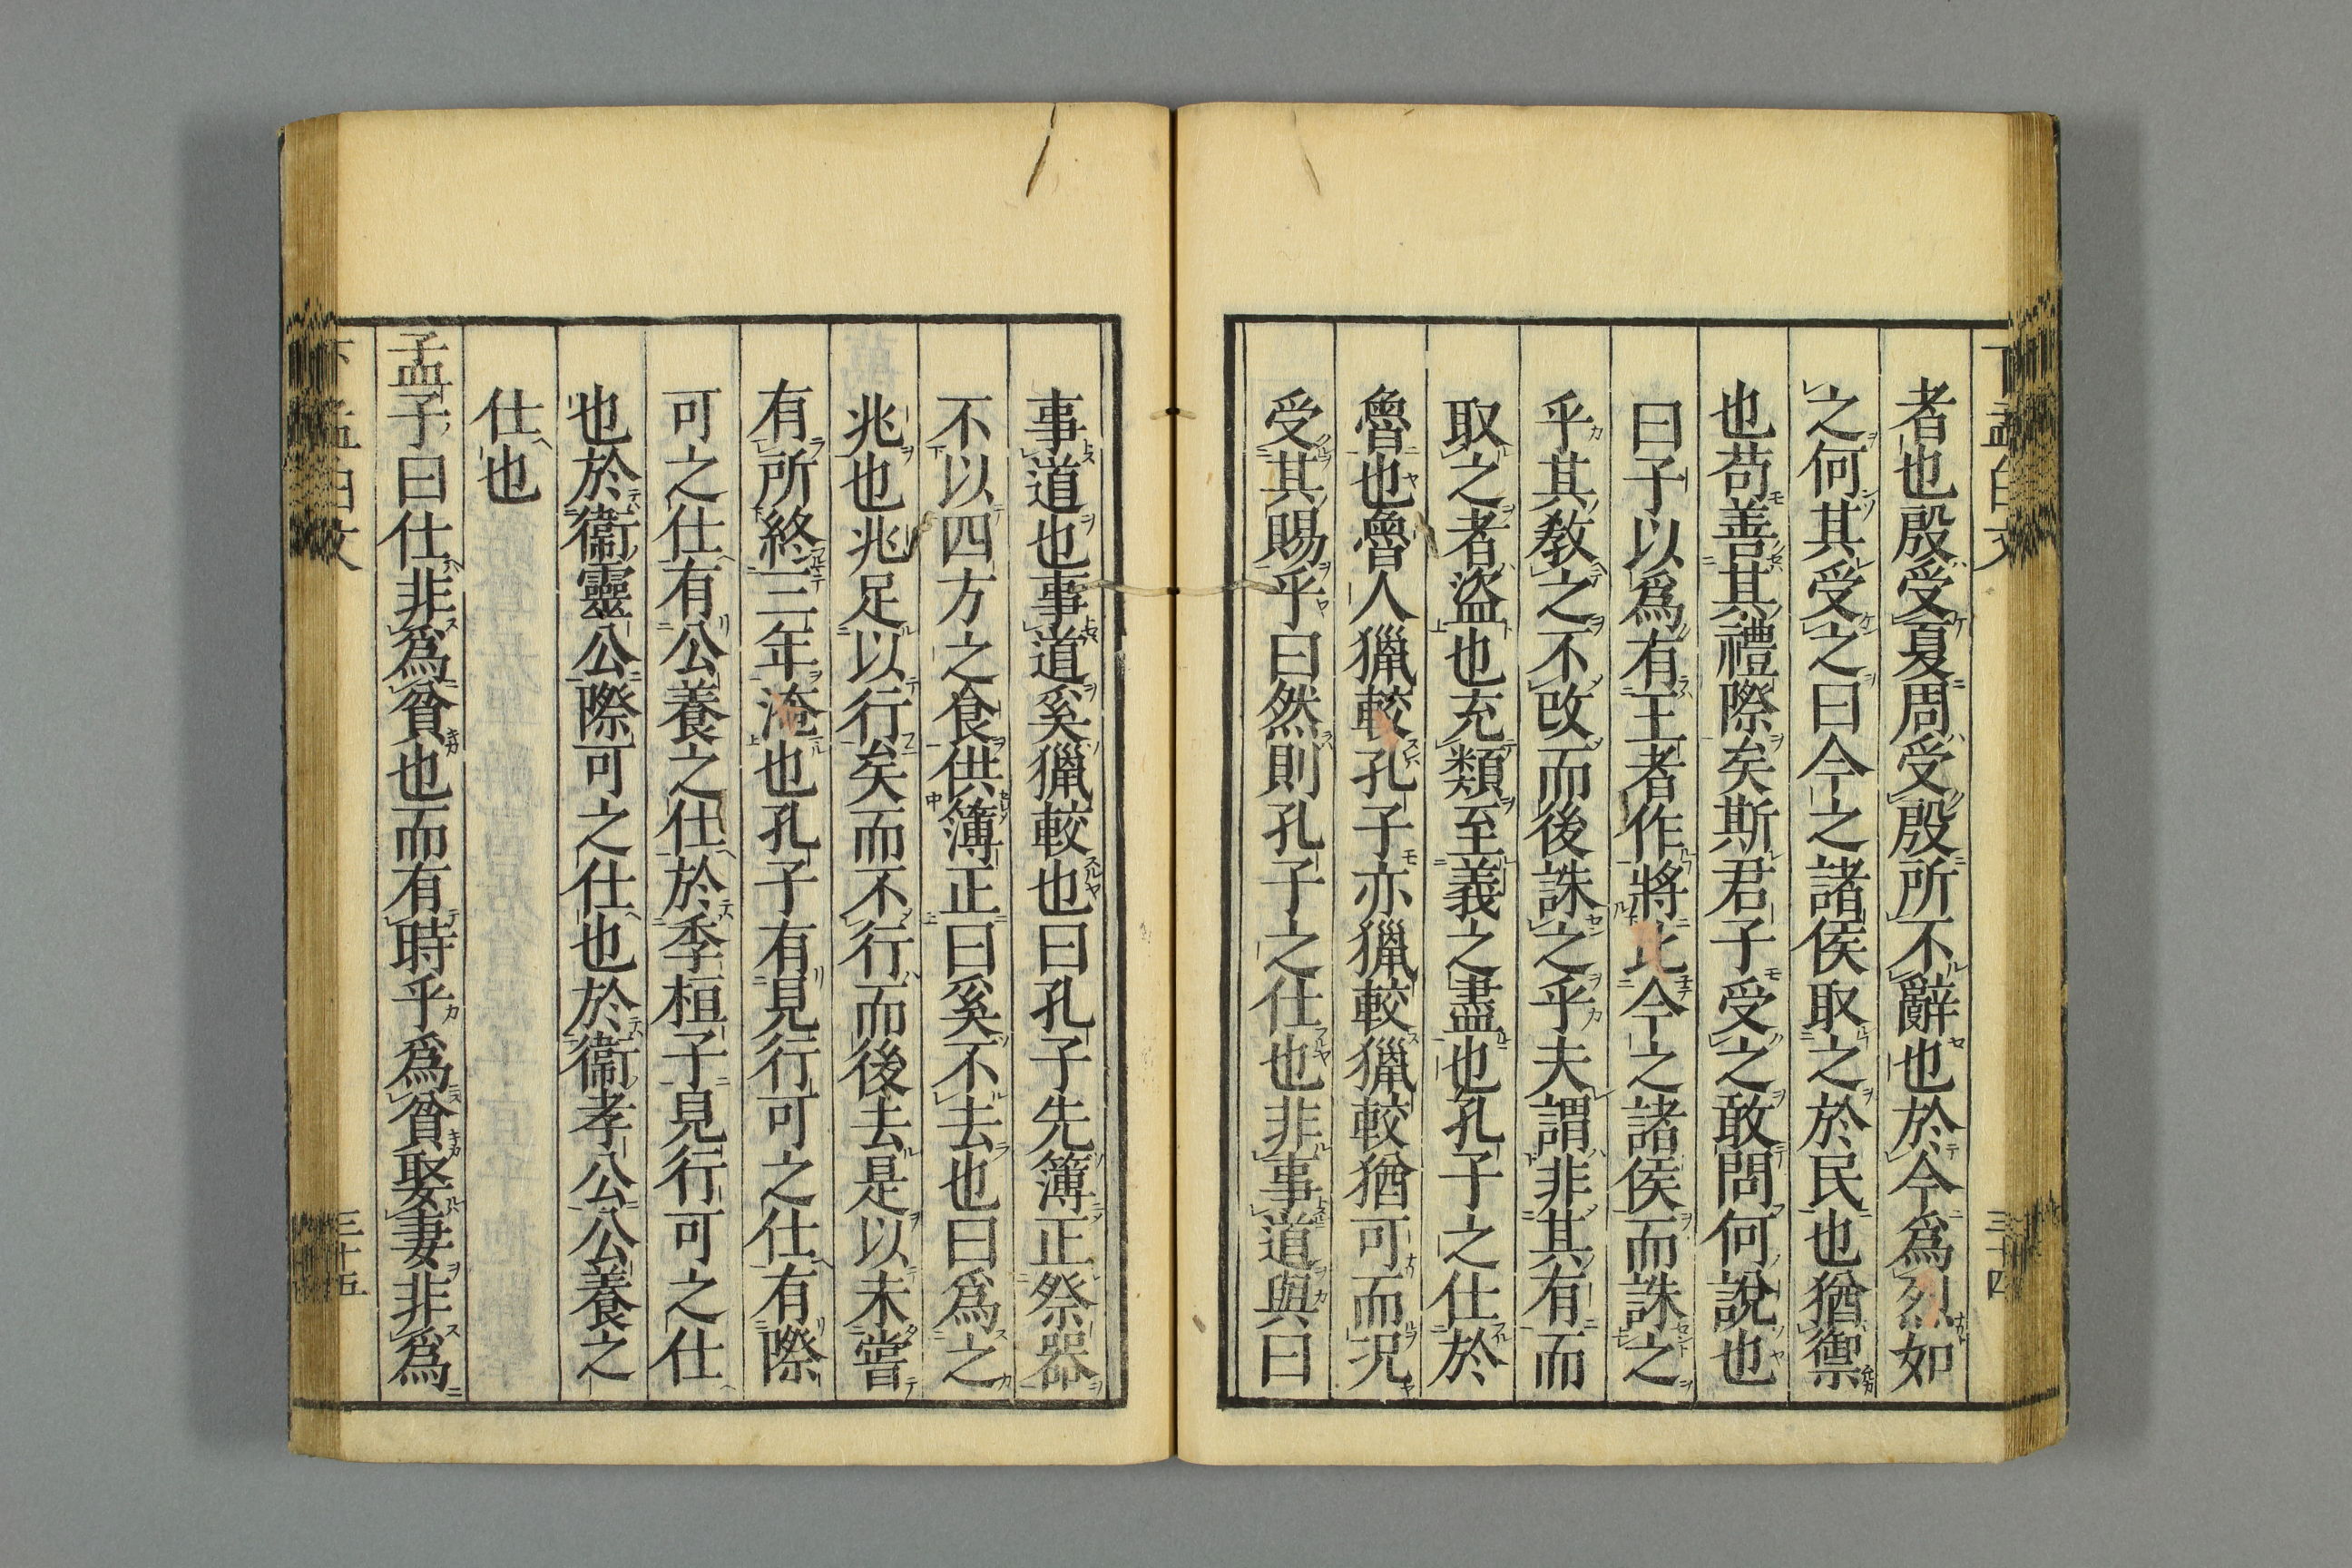 下孟白文 三十四
者也殷受夏周受殷所不辭也於今爲烈如
之何其受之曰今之諸侯取之於民也猶禦
也苟善其禮際矣斯君子受之敢問何說也
曰子以爲有王者作將比今之諸侯而誅之
乎其敎之不改而後誅之乎夫謂非其有而
取之者盜也充類至義之盡也孔子之仕於
魯也魯人獵較孔子亦獵較獵較猶可而况
受其賜乎曰然則孔子之仕也非事道與曰
事道也事道奚獵較也曰孔子先簿正祭器
不以四方之食供簿正曰奚不去也曰爲之
兆也兆足以行矣而不行而後去是以未嘗
有所終三年淹也孔子有見行可之仕有際
可之仕有公養之仕於季桓子見行可之仕
也於衞靈公際可之仕也於衞孝公公養之
仕也
孟子曰仕非爲貧也而有時乎爲貧娶妻非爲
下孟白文 三十五